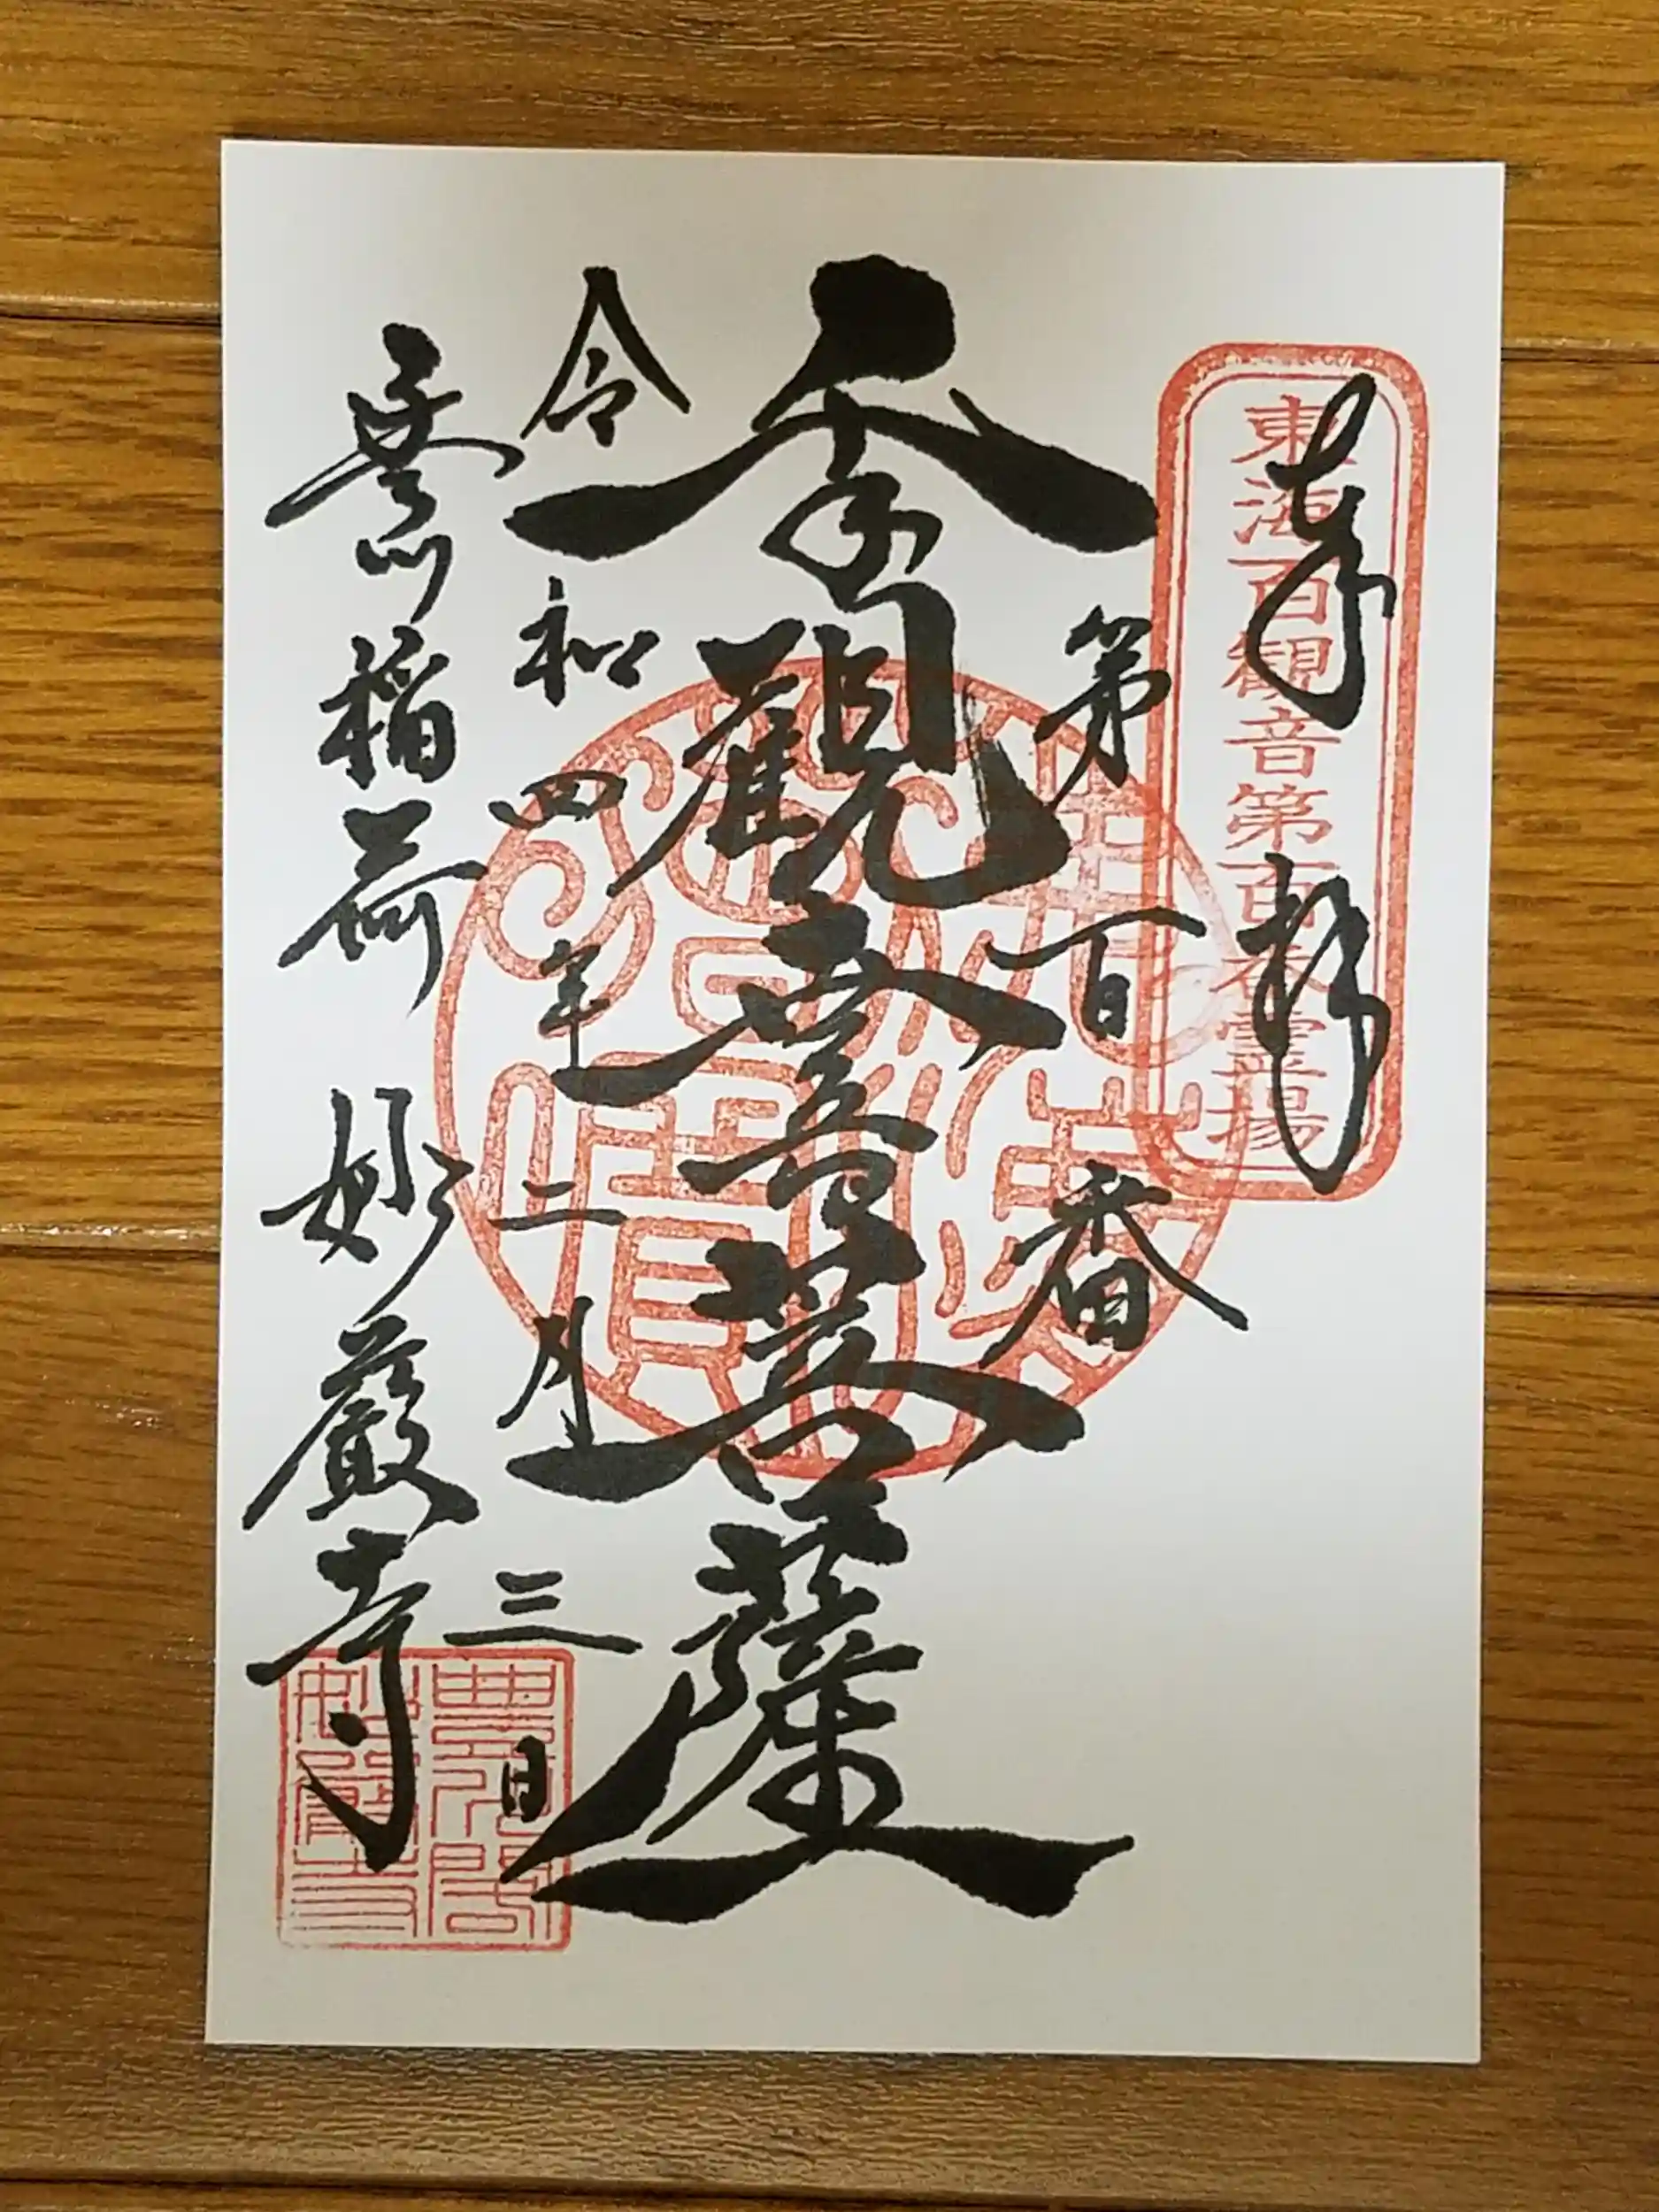 東海百観音第百番霊場
奉拝
第百番
千手觀世音菩薩
令和四年二月三日
豊川稲荷 妙嚴寺